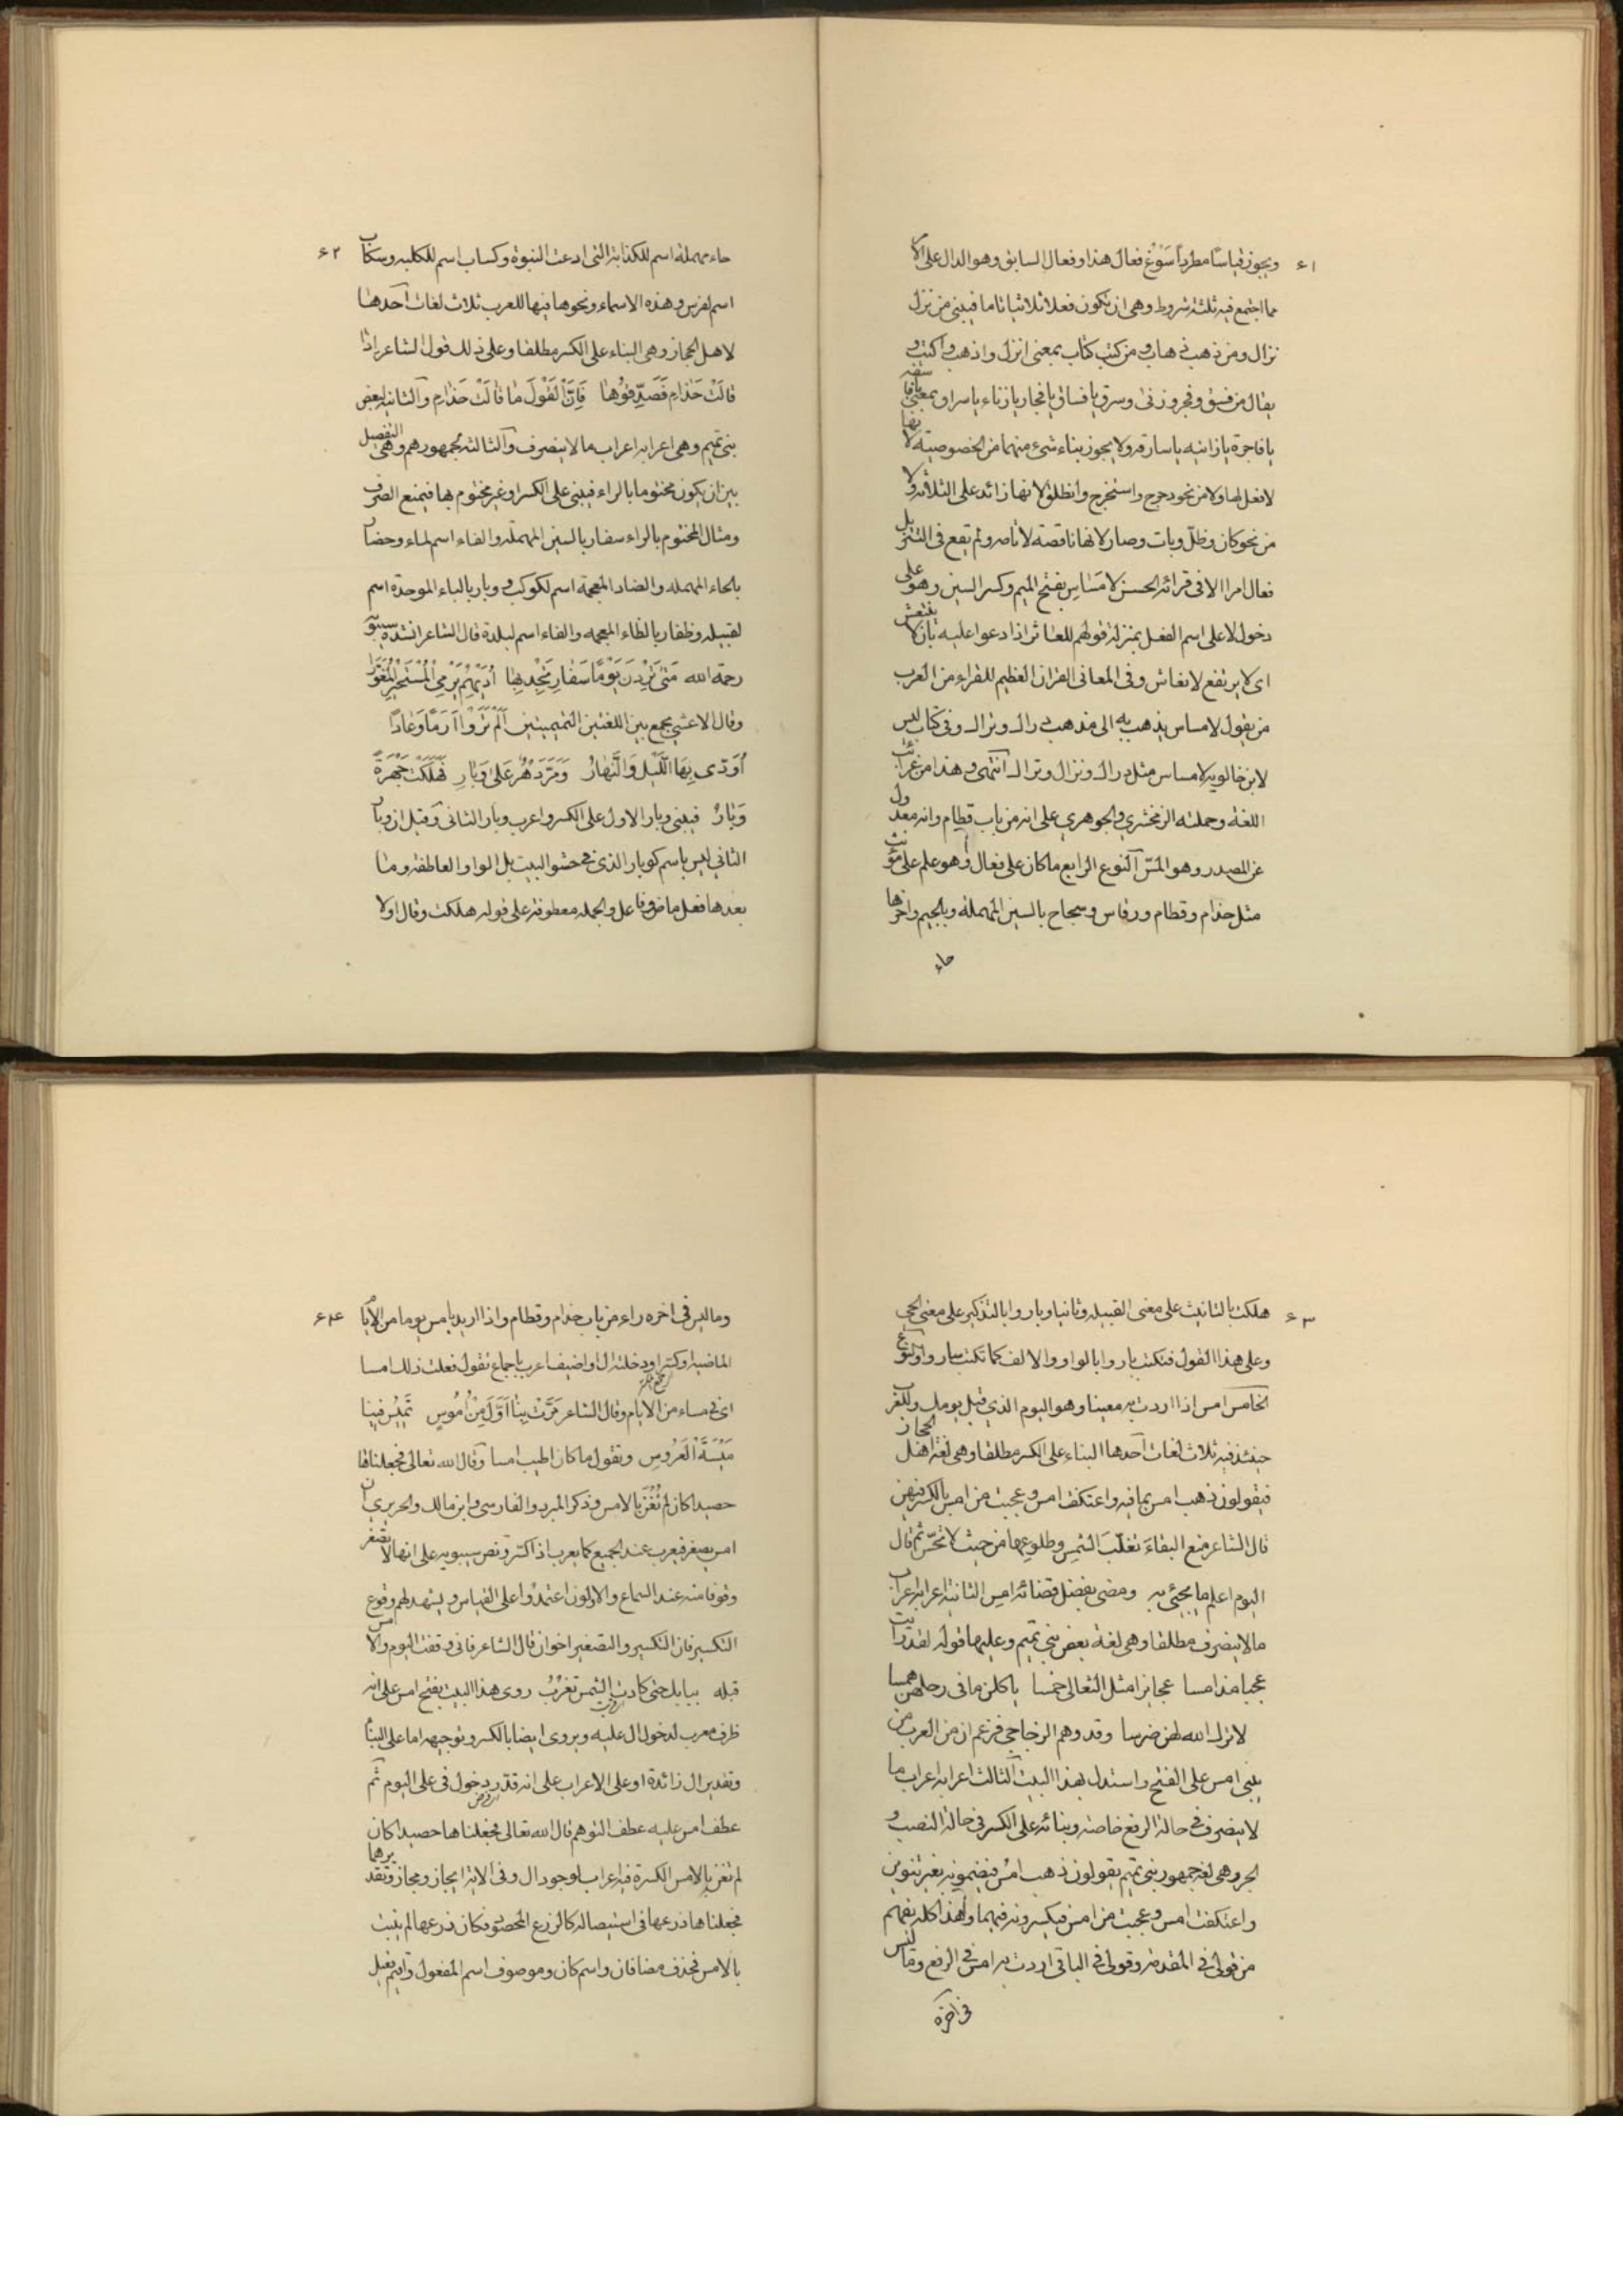 ٦١ ويجوز قياسا مطرداً سَوْغ فعال هذا وفعال السابق وهو الدال على الامر
مما اجتمع فيه ثلثة شروط وهى ان تكون فعلا ثلاثيا تاما فيبنى من نزل
نزال ومن ذهب ذهاب ومن كتب كتاب بمعنى انزل واذهب واكتب و
يقال من فسق وفجر وزنى وسرق يا فساق يا فجار يا زناء يا سراق بمعنى يا فاسقه
يا فاجرة يا زانيه يا سارقه ولا يجوز بناء شىء منهما من الخصوصيته لانها
لا فعل لها ولا من نحو دحرج واستخرج وانطلق لانها زائد على الثلاثه ولا
من نحو كان وظل وبات وصار لانها ناقصة لا تامه ولم يقع فى التنزيل
فعال امرا الا فى قرائة الحسن لا مَسَاسِ بفتح الميم وكسر السين وهو على
دخول لا على اسم الفعل بمنزلة قولهم للعاثر اذا دعوا عليه بان لا ينتعش
اى لا يرتفع لا نعاش وفى المعانى القران العظيم للفراء من العرب
من يقول لا مساس يذهب به الى مذهب دراك ونزال وفى كتاب ليس
لابن خالويه لا مساس مثل دراك ونزال وتراك انتهى وهذا من غرائب
اللغة وحمله الزمخشرى والجوهرى على انه من باب قطام وانه معدول
عن المصدر وهو المس النوع الرابع ما كان على فعال وهو علم على مؤنث
مثل حذام وقطام ورقاس وسجاح بالسين المهملة وبالجيم واخرها
حاء
٦٢ حاء مهملة اسم للكذابة التى ادعت النبوة وكساب اسم للكلبه وسكاب
اسم لفرس وهذه الاسماء ونحوها فيها للعرب ثلاث لغات احدها
لاهل الحجاز وهى البناء على الكسر مطلقا وعلى ذلك قول الشاعر اذا
قالَتْ حَذامِ فَصَدِّقوُها فَاِنَّ الْقَوْلَ ما قالَتْ حَذامِ والثانية لبعض
بنى تميم وهى اعرابه اعراب ما لا ينصرف والثالثه لجمهورهم وهى التفصيل
بين ان يكون مختوما بالراء فيبنى على الكسر او غير مختوم بها فيمنع الصرف
ومثال المختوم بالراء سفار بالسين المهملة والفاء اسم لماء وحضار
بالحاء المهمله والضاد المعجمة اسم لكوكب ووبار بالباء الموحدة اسم
لقبيله وظفار بالظاء المعجمه والفاء اسم لبلدة قال الشاعر انشده سيبويه
رحمة الله مَتى تَرِدَنْ يَوْمًا سَفارِ تَجِدْ بِها اُدَيْهِم يَرْمي الْمُسْتَحيزَ الْمُعَوَّرا
وقال الاعشى يجمع بين اللغتين التميميتين اَلَمْ تَرَوْا اَرَمًا وَعادًا
اَوْدى بِهَا اللَّيْلُ وَالنَّهارُ وَمَرَّ دَهْرٌ عَلى وَبارِ فَهَلَكَتْ جَهْرَةً
وَبارُ فيبنى وبار الاول على الكسر واعرب وبار الثانى وقيل ان وبار
الثانى ليس باسم كوبار الذى فى حشو البيت بل الواو العاطفه وما
بعدها فعل ماض وفاعل والجمله معطوفة على قوله هلكت وقال اولا
٦٣ هلكت بالتانيث على معنى القبيله وثانيا وباروا بالتذكير على معنى الحى
وعلى هذا القول فتكتب باروا بالواو والالف كما تكتب ساروا والنوع
الخامس امس اذا اردت به معينا وهو اليوم الذى قبل يومك وللعرب
حينئذ فيه ثلاث لغات احدها البناء على الكسر مطلقا وهى لغة اهل الحجاز
فيقولون ذهب امس بما فيه واعتكف امس وعجبت من امس بالكسر فيهن
قال الشاعر منع البقاءَ تقلّبَ الشمسِ وطلوعها من حيث لا ثم قال
اليوم اعلم ما يجئى به ومضى بفضل قضائه امس الثانية اعرابه اعراب
ما لا ينصرف مطلقا وهى لغة بعض بنى تميم وعليها قوله لقد رايت
عجبا مذ امسا عجايزا مثل الثعالى خمسا ياكلن ما فى رحلهن همسا
لا ترك الله لهن ضرسا وقد وهم الزجاجى فزعم ان من العرب من
يبنى امس على الفتح واستدل بهذا البيت الثالث اعرابه اعراب ما
لا ينصرف فى حالة الرفع خاصة وبنائه على الكسر فى حالة النصب و
الجر وهى لغة جمهور بنى تميم يقولون ذهب امسُ فيضمونه بغير تنوين
واعتكفت امس وعجبت من امس فيكسرونه فيهما ولهذا كله يفهم
من قولى فى المقدمة وقولى فى الباقى اردت به امس فى الرفع وما ليس
فى اخره
٦٤ وما ليس فى اخره راء من باب حذام وقطام واذا اريد بامس يوما من الايام
الماضية او كسر او دخلته ال او اضيف اعرب باجماع تقول فعلت ذلك امسا
اى فى مساء من الايام وقال الشاعر مَرَّتْ بِنا اَوَّلَ مِنْ اُمُوسِ تَميسُ فينا
مَيْسَةَ الْعَرُوسِ وتقول ما كان اطيب امسا وقال الله تعالى فجعلناها
حصيدا كان لم تُغْنَ بالامس وذكر المبرد والفارسى وابن مالك والحريرى ان
امس يصغر فيعرب عند الجميع كما يعرب اذا كسر ونص سيبويه على انها لا تصغر
وقوفا منه عند السماع والاولون اعتمدوا على القياس ويشهد لهم وقوع
التكسير فان التكسير والتصغير اخوان قال الشاعر فانى وقفت اليوم والامس
قبله ببابك حتى كادت الشمس تغرُبُ روى هذا البيت بفتح امس على انه
ظرف معرب لدخول ال عليه ويروى ايضا بالكسر وتوجيهه اما على البناء
وتقدير ال زائدة او على الاعراب على انه قدّر دخول فى على اليوم ثم
عطف امس عليه عطف التوهم قال الله تعالى فجعلناها حصيدا كان
لم تغن بالامس الكسرة فيه اعراب لوجود ال وفى الاية ايجاز ومجاز وتقديرهما
فجعلناها زرعها فى استيصاله كالزرع المحصود فكان زرعها لم يثبت
بالامس فحذف مضافان واسم كان وموصوف اسم المفعول واقيم فعيل